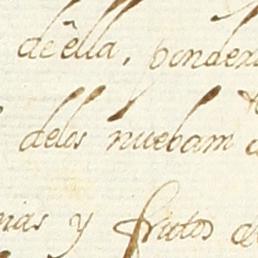 de ella, ponder
delos nuebam
mas y frutos de